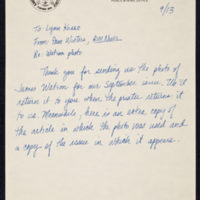 9/13
To: Lynn
From: Pam Winters,
Re: Watson photo
Thank you for sending us the photo of
James Watson for our September issue. We'll
return it to you when the printer returns it
to us. Meanwhile, here is an extra copy of
the article in which the photo was used and
a copy of the issue in which it appears.